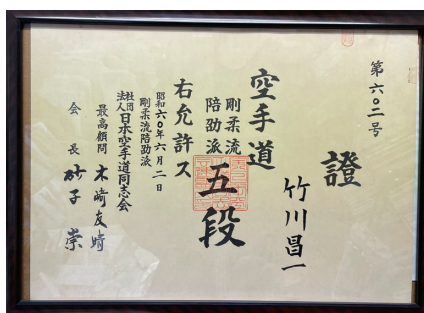 第六〇二号
證
竹川昌一
空手道
剛柔流
陪劭派
五段
右允許ス
昭和六〇年六月二日
剛柔流陪劭派
社団法人日本空手道同志会
最高顧問 木崎友晴
会長 砂子崇